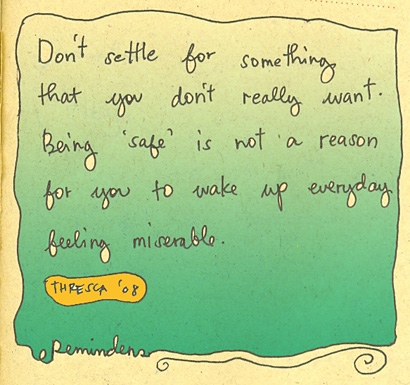 Don't settle for something
that you don't really want.
Being 'safe' is not a reason
for you to wake up everyday
feeling miserable.
THRESCA '08
Reminders